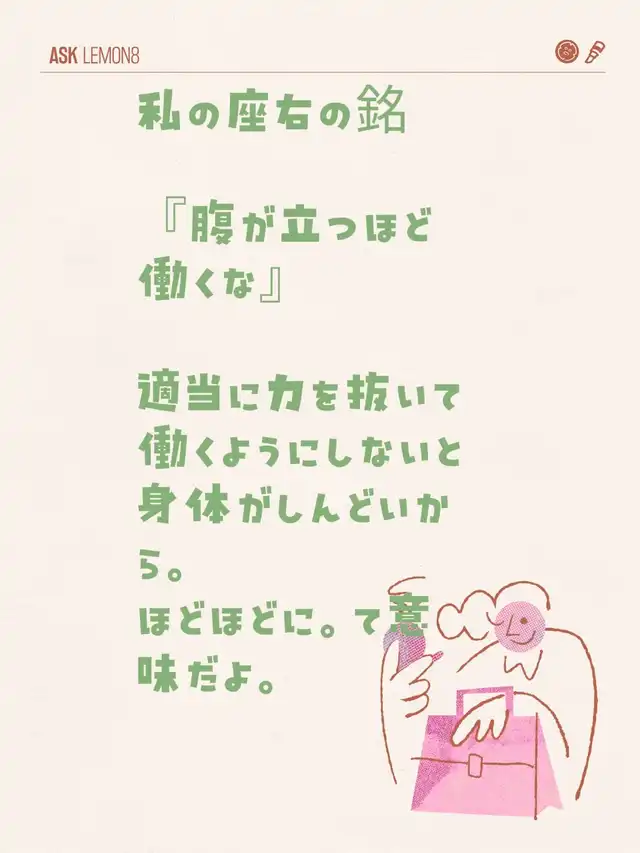 ASK LEMON8
私の座右の銘
『腹が立つほど
働くな』
適当に力を抜いて
働くようにしないと
身体がしんどいか
ら。
ほどほどに。て意
味だよ。